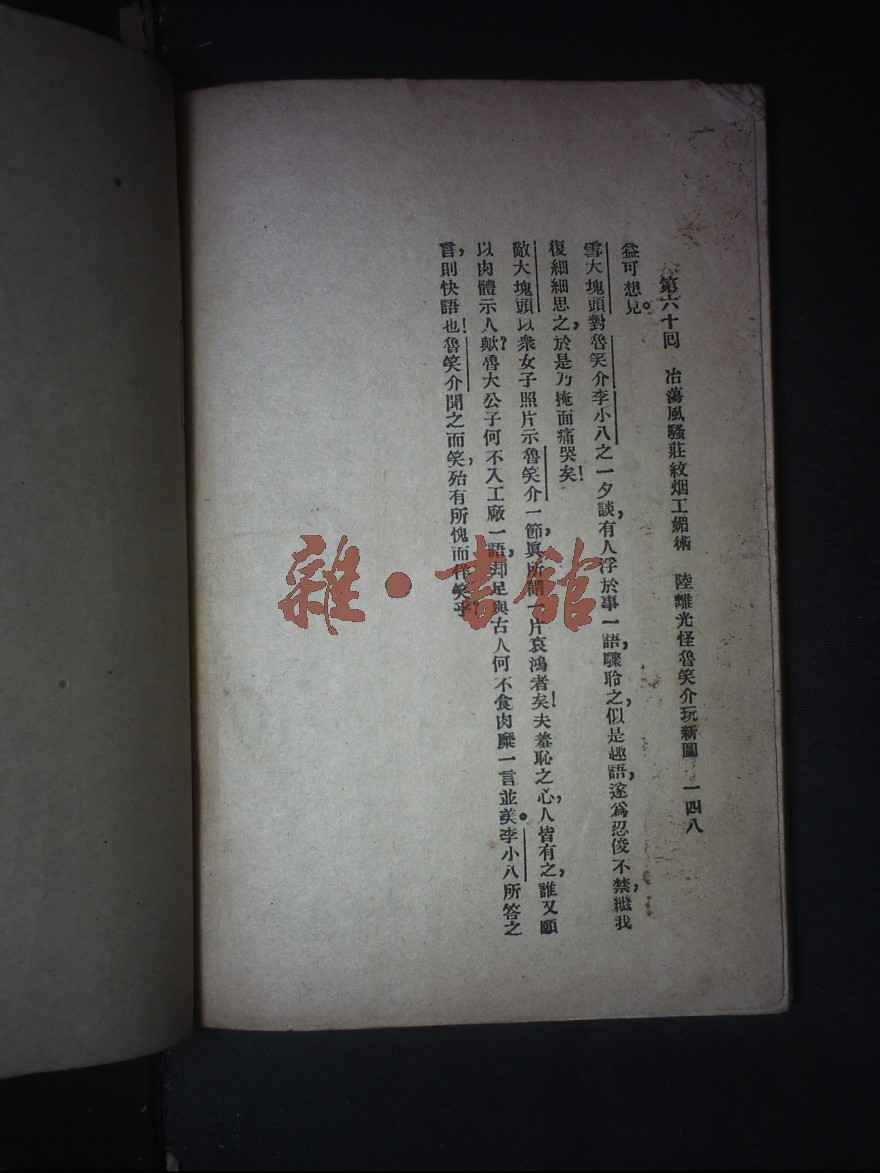 第六十回　冶蕩風騷莊紋烟工媚術　陸離光怪魯笑介玩新圖　一四八
益可想見。
雪大塊頭對魯笑介李小八之一夕談，有人浮於事一語，驟聆之，似是趣語，遂爲忍俊不禁，繼我
復細細思之，於是乃掩面痛哭矣！
敵大塊頭以衆女子照片示魯笑介一節，眞所謂一片哀鴻者矣！夫羞恥之心，人皆有之，誰又願
以肉體示人歟？魯大公子何不入工廠一語，却足與古人何不食肉糜一言並美。李小八所答之
言，則快語也！魯笑介聞之而笑，殆有所愧而佯笑乎？
雜·書館